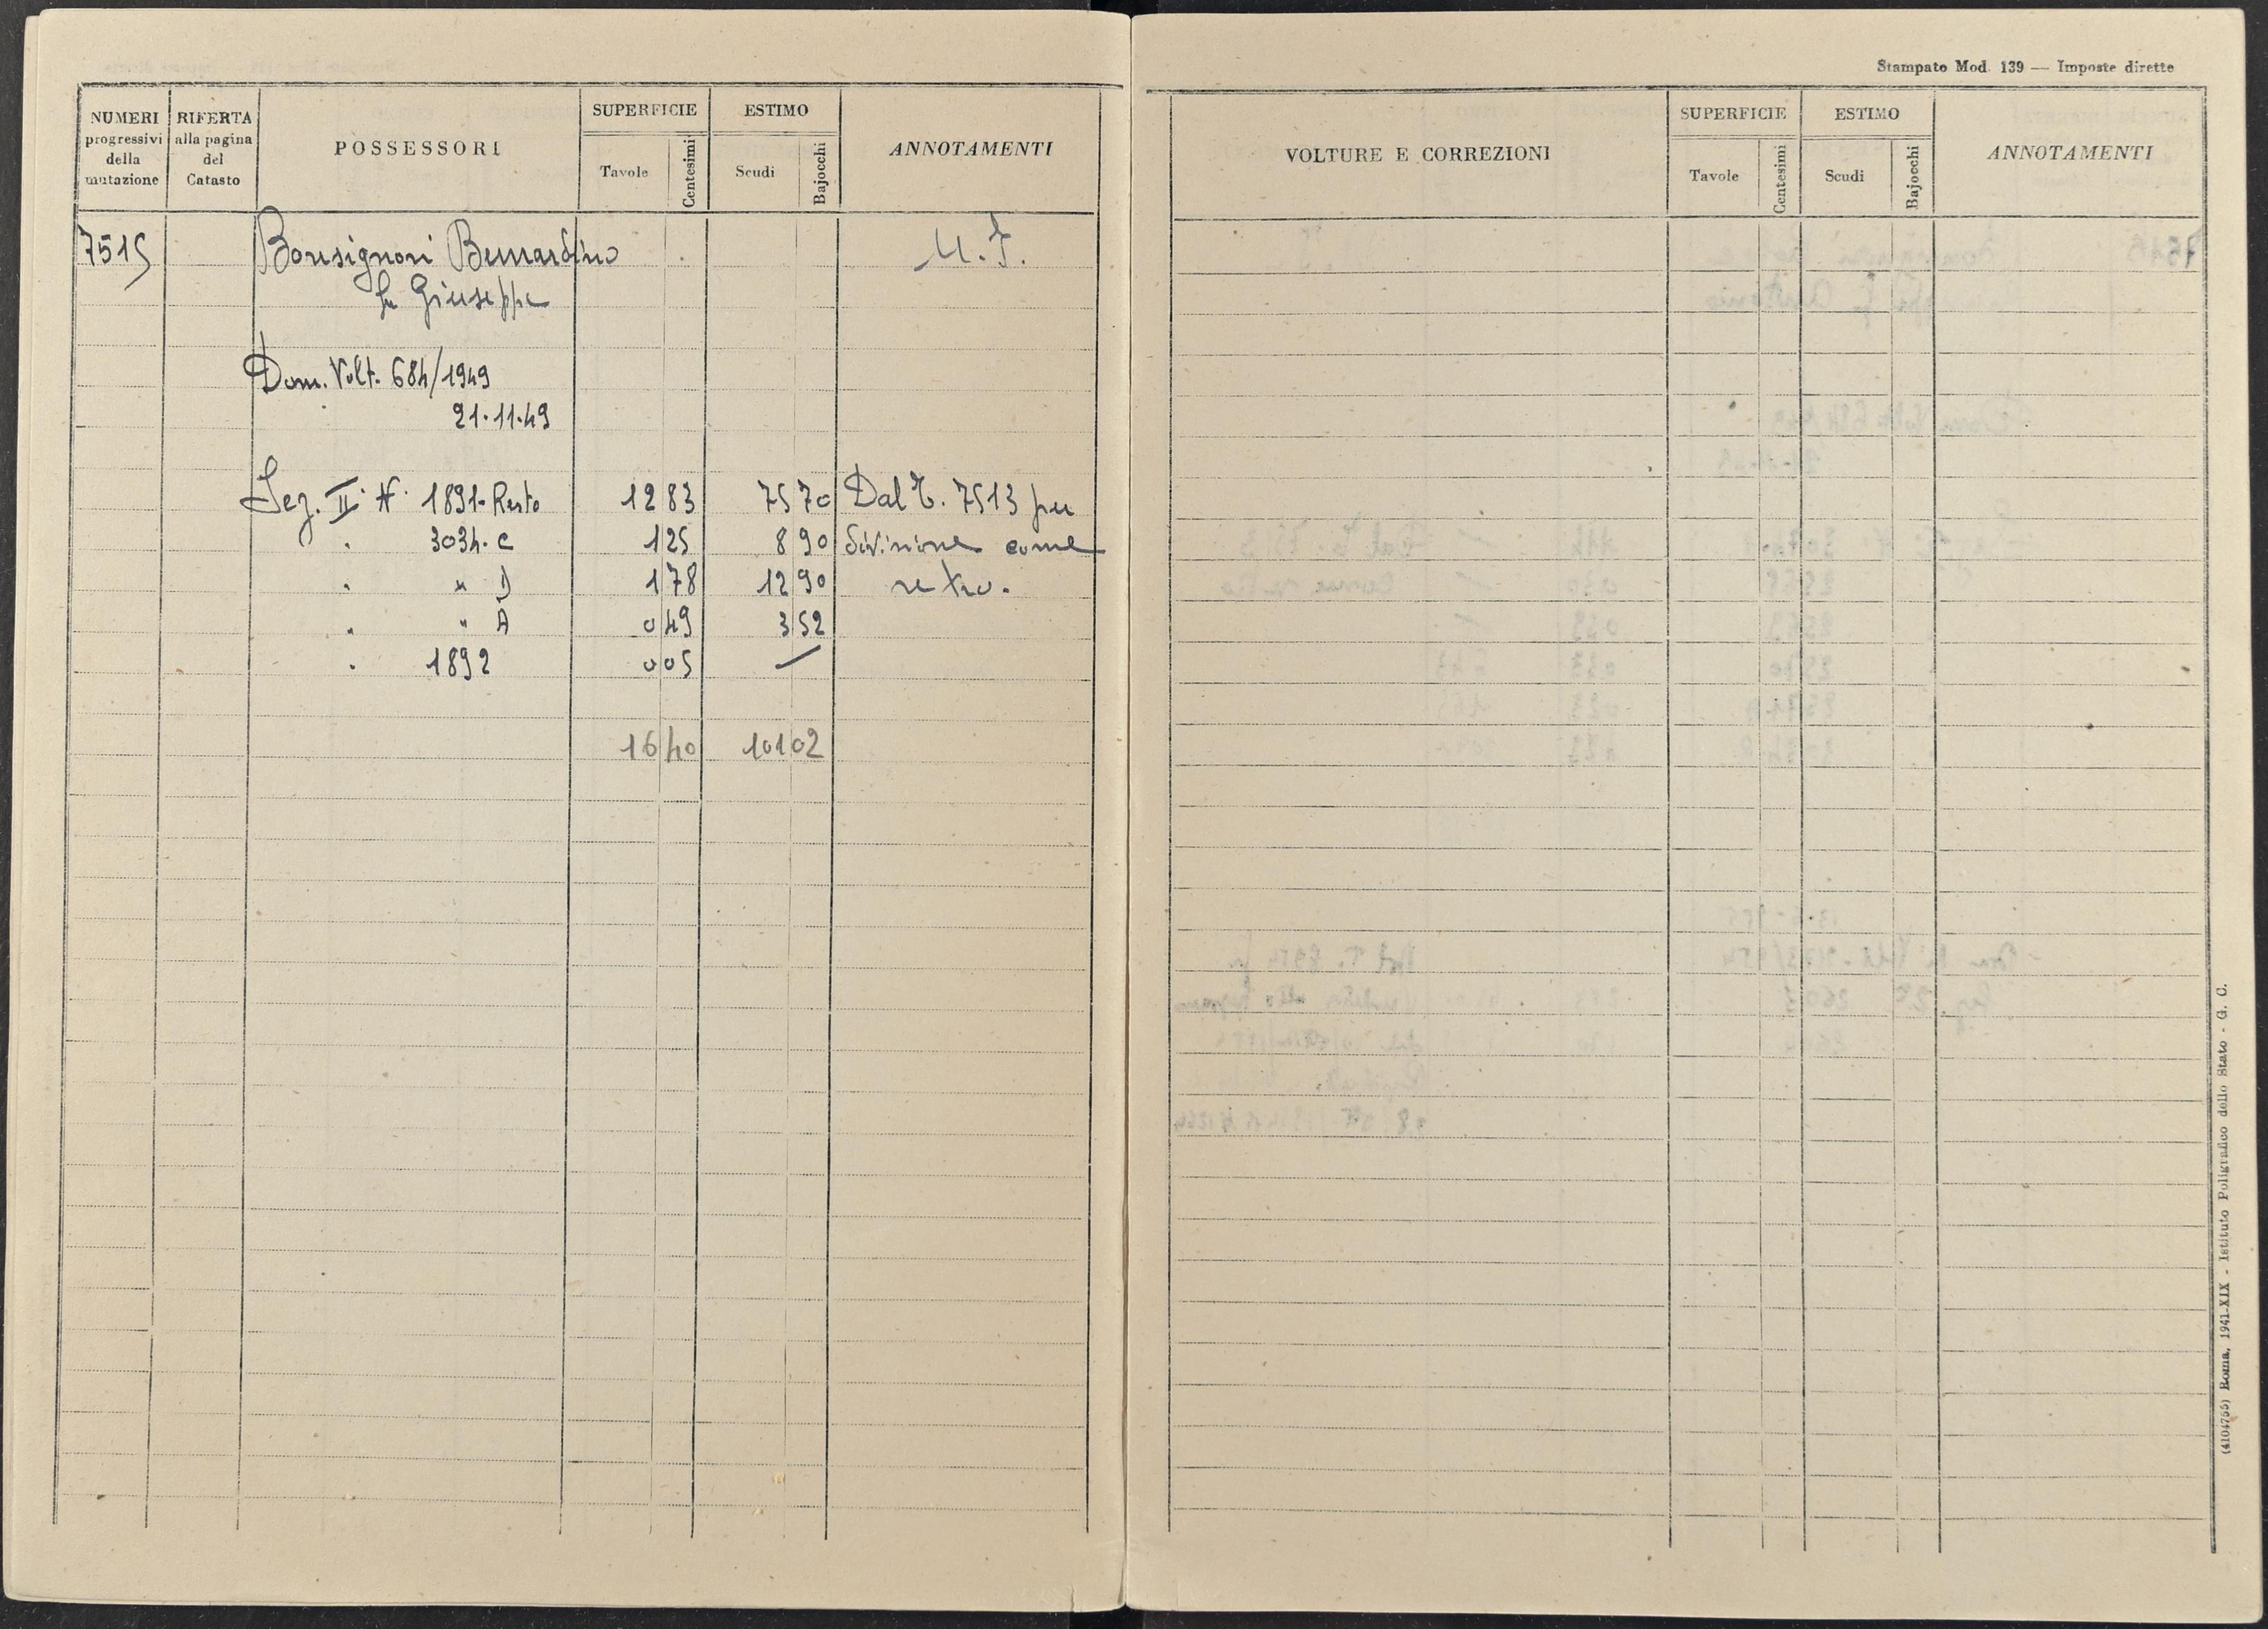 NUMERI progressivi della mutazione
RIFERTA alla pagina del Catasto
POSSESSORI
SUPERFICIE
Tavole
Centesimi
ESTIMO
Scudi
Bajocchi
ANNOTAMENTI
7515 Bonsignori Bernardino U.F.
fu Giuseppe
Dom. Volt. 684/1949
21.11.49
Sez. II N. 1891. Resto 12 83 75 70 Dal T. 7513 per
" 3034. C 1 25 8 90 divisione come
" " D 1 78 12 90 retro.
" " A 0 49 3 52
" 1892 0 05 —
16 40 101 02
Stampato Mod. 139 — Imposte dirette
VOLTURE E CORREZIONI
SUPERFICIE
Tavole
Centesimi
ESTIMO
Scudi
Bajocchi
ANNOTAMENTI
(4104755) Roma, 1941-XIX - Istituto Poligrafico dello Stato - G. C.